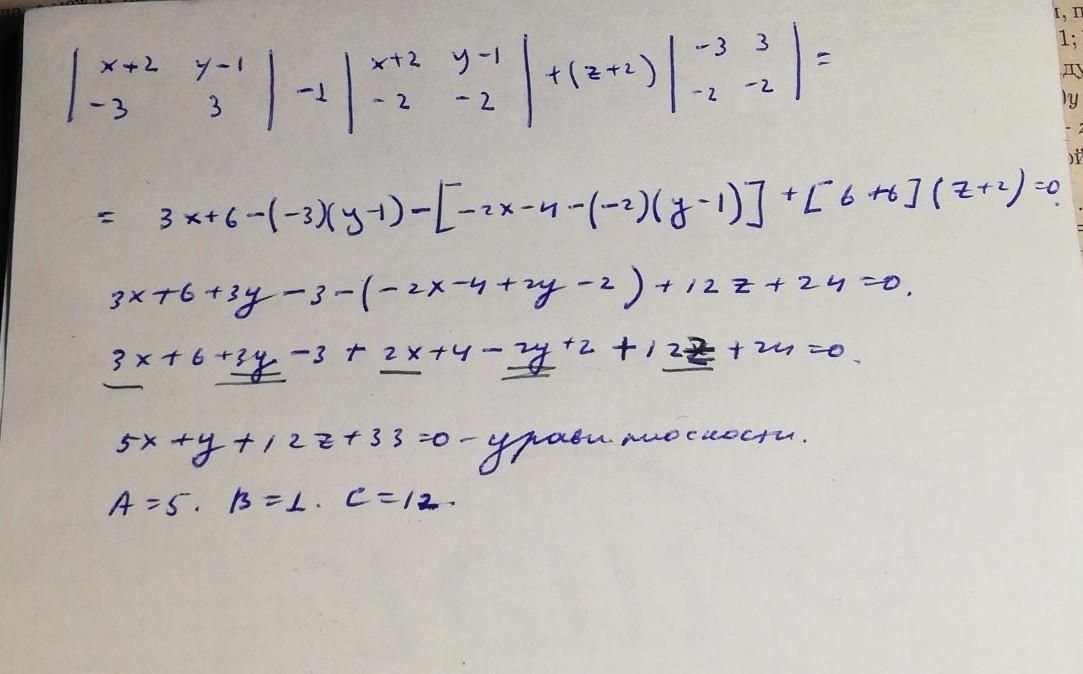 | x+2 y-1 | -1 | x+2 y-1 | +(z+2) | -3 3 | =
| -3 3 | | -2 -2 | | -2 -2 |
= 3x+6-(-3)(y-1)-[-2x-4-(-2)(y-1)]+[6+6](z+2)=0.
3x+6+3y-3-(-2x-4+2y-2)+12z+24=0.
3x+6+3y-3+2x+4-2y+2+12z+24=0.
5x+y+12z+33=0-уравн. плоскости.
A=5. B=1. C=12.